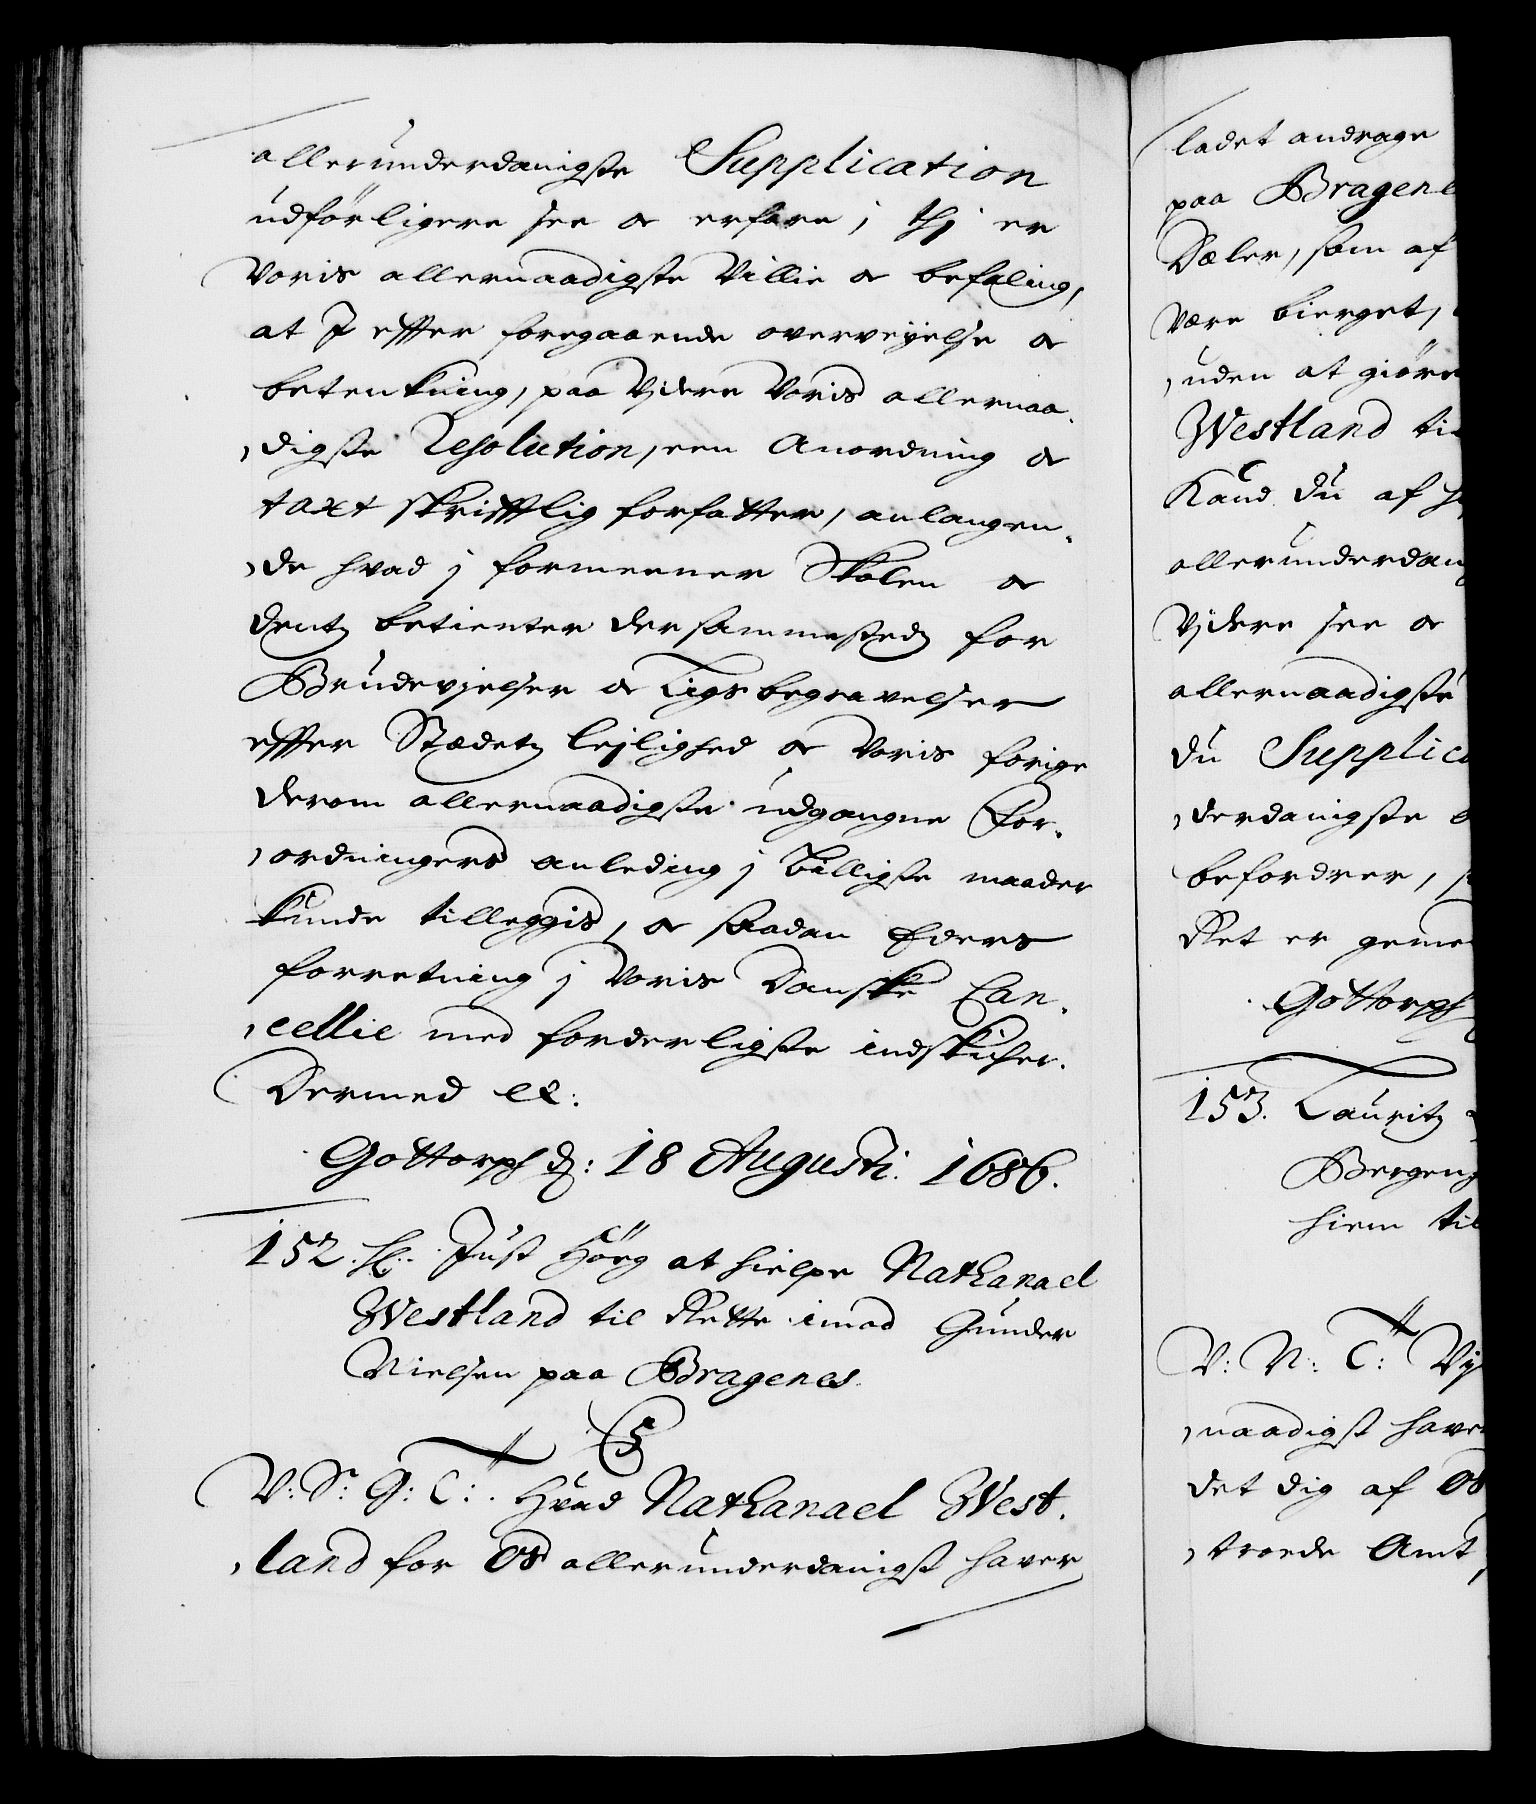 allerunderdanigste Supplication
udförligere see oc erfare, thj er
Voris allernaadigste Villie oc befaling,
at I effter foregaaende overvejelse oc
betenkning, paa Vjdere Voris allernaa,
,digste Resolution, een Anordning oc
taxt skrifftlig forfatter, anlangen,
,de hvad j formeener Skolen oc
dents betienter dersammesteds for
Brudevjelser oc Ligsbegravelser
effter Stædets lejlighed oc Voris forige
derom allernaadigste udgangne For,
,ordningers anleding j billigste maader
kunde tilleggis, oc saadan Eders
forretning j Voris Danske Can,
,cellie med forderligste indskicher.
Dermed etc:
Gottorph d: 18 Augusti. 1686.
152. Hr: Just Höeg at hielpe Nathanael
Westland til Rette imod Gunder
Nielsen paa Bragenes.
C5
V: Sr: G: T: Hvad Nathanael West,
,land for Os allerunderdanigst haver
ladet andrage
paa Bragene
Dæler, som af
være bierget,
,uden at giöre
Westland til
Kand du af
allerunderdan
Vjdere see oc
allernaadigste
du Supplica
,derdanigste
befordrer,
Ret er geme
Gottorph
153. Lauritz
Bergens
hiem til
V: N: T: Vj
,naadigst have
det dig af Os
,troede Amt,